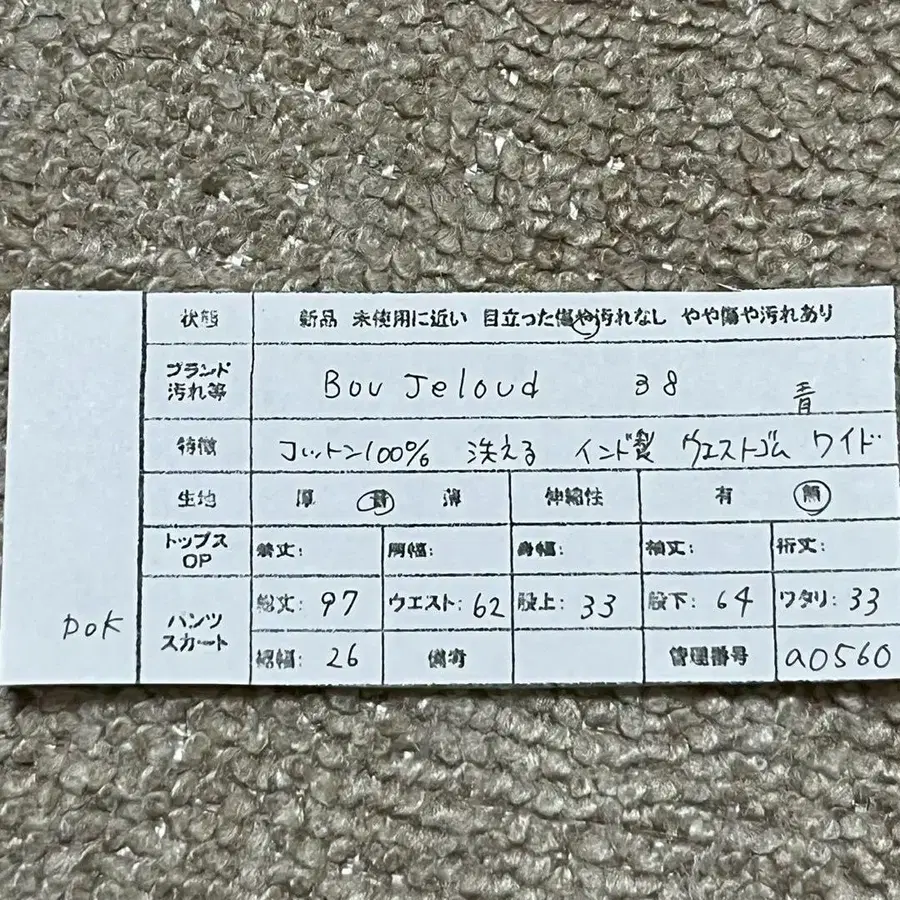 状態 新品 未使用に近い 目立った傷や汚れなし やや傷や汚れあり
ブランド
汚れ等 Bou Jeloud 38 青
特徴 コットン100% 洗える インド製 ウエストゴム ワイド
生地 厚 普 薄 伸縮性 有 無
トップス
OP 着丈: 肩幅: 身幅: 袖丈: 裄丈:
DOK パンツ
スカート 総丈: 97 ウエスト: 62 股上: 33 股下: 64 ワタリ: 33
裾幅: 26 備考 管理番号 a0560